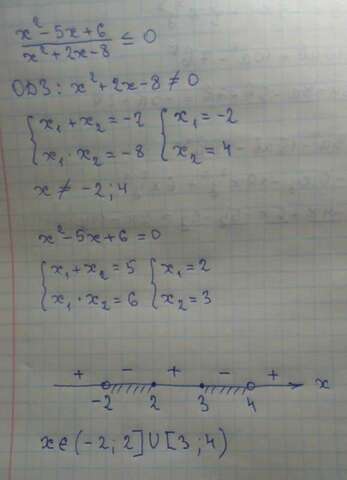 x² - 5x + 6 / x² + 2x - 8 ≤ 0
ОДЗ: x² + 2x - 8 ≠ 0
{ x₁ + x₂ = -2 { x₁ = -2
{ x₁ · x₂ = -8 { x₂ = 4
x ≠ -2; 4
x² - 5x + 6 = 0
{ x₁ + x₂ = 5 { x₁ = 2
{ x₁ · x₂ = 6 { x₂ = 3
+ - + - +
-2 2 3 4 x
x ∈ (-2; 2] ∪ [3; 4)